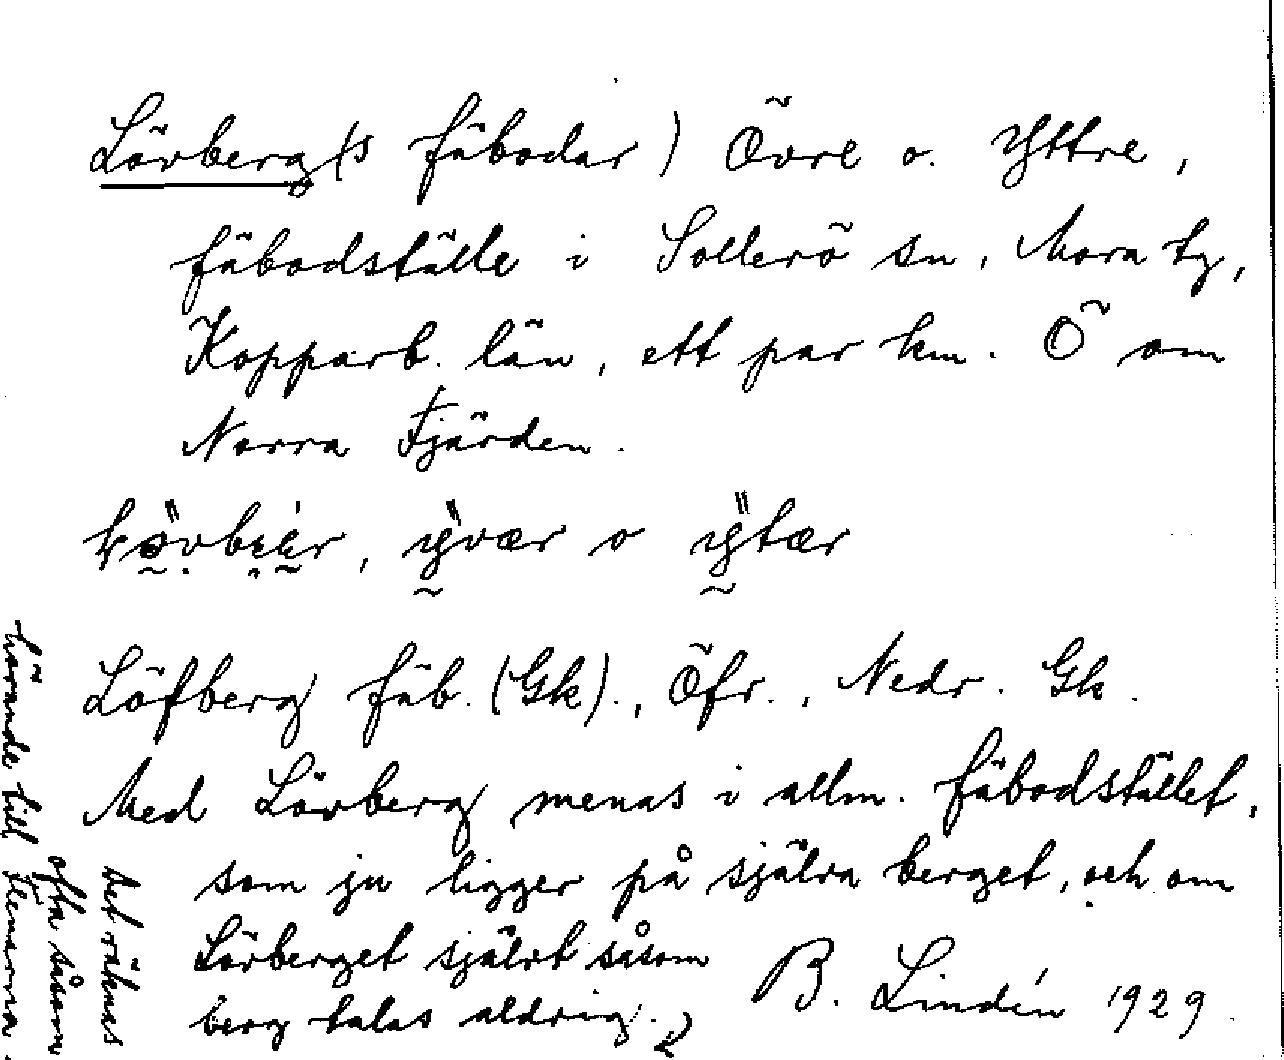 Lövberg(s fäbodar) Övre o. Yttre,
fäbodställe i Sollerö sn, Mora tg,
Kopparb. län, ett par km. Ö om
Norra Fjärden.
Löfberg fäb. (Gk)., Öfr., Nedr. Gk.
Med Lövberg menas i allm. fäbodstället,
som ju ligger på själva berget, och om
Lövberget självt såsom
berg talas aldrig.
B. Lindén 1929.
Det räknas
ofta såsom
hörande till Flenarna.